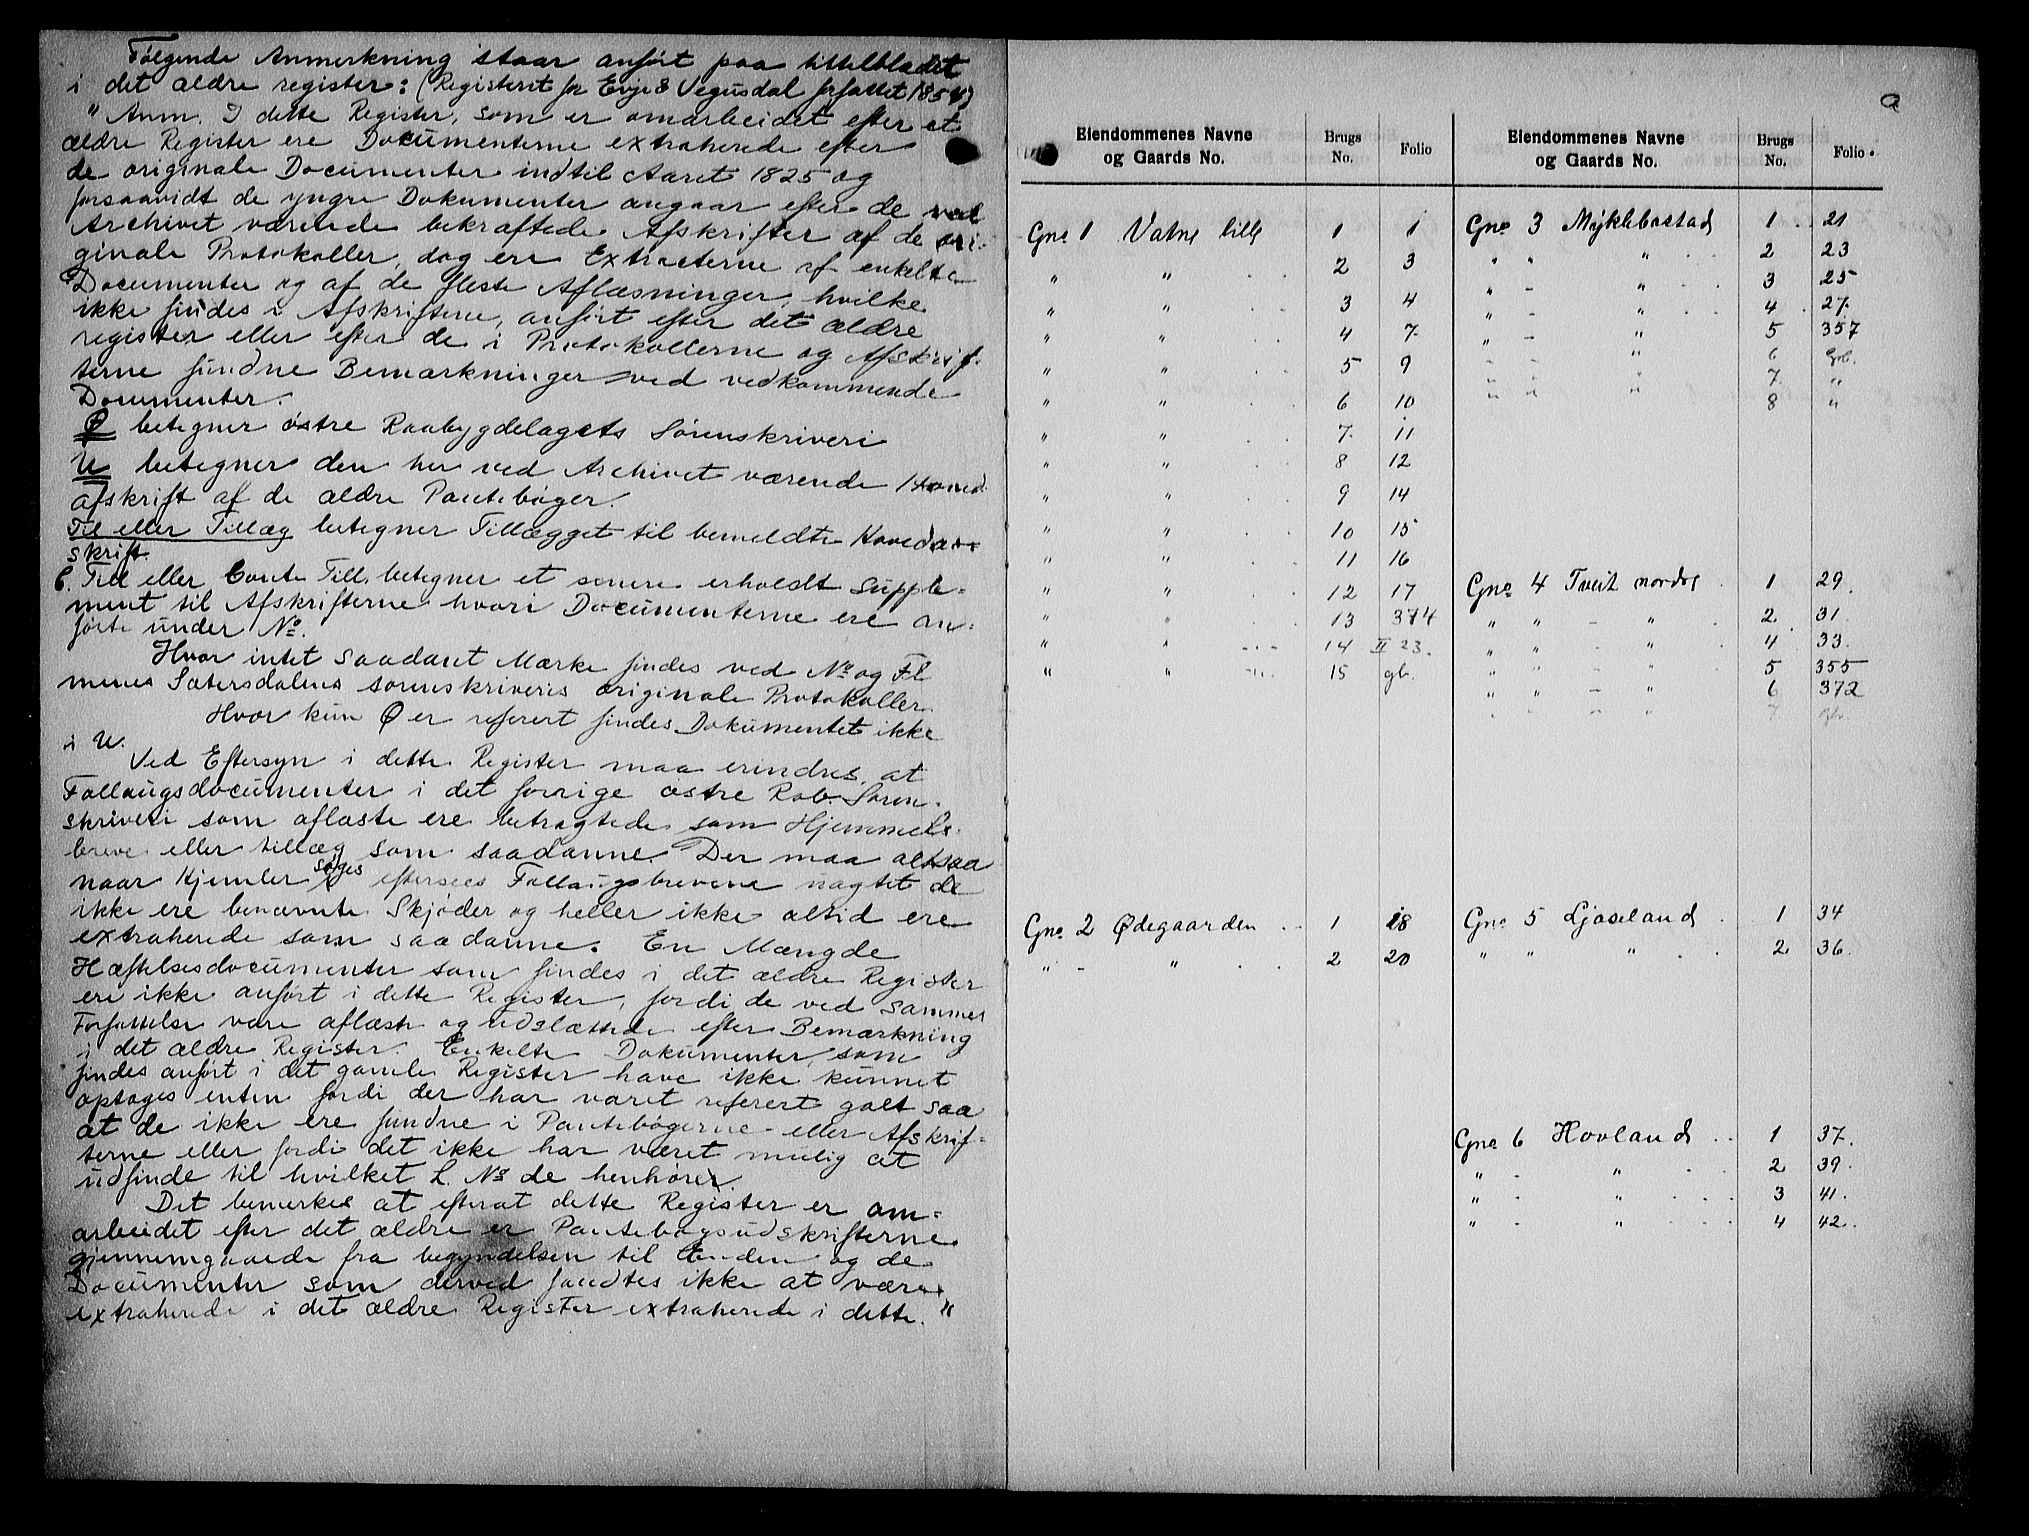 Følgende Anmerkning staar anført paa tittelbladet
i det ældre register: (Registeret for Evje & Vegusdal forfattet 1854)
"Anm. I dette Register, som er omarbeidet efter et
ældre Register ere Documenterne extraherede efter
de originale Documenter indtil Aaret 1825 og
forsaavidt de yngre Dokumenter angaar efter de ved
Archivet værende bekræftede Afskrifter af de ori-
ginale Protokoller, dog ere Extracterne af enkelte
Documenter og af de fleste Aflæsninger, hvilke
ikke findes i Afskrifterne, anført efter det ældre
register eller efter de i Protokollerne og Afskrif-
terne fundne Bemærkninger ved vedkommende
Documenter.
Ø betegner østre Raabygdelagets Sørenskriveri
U betegner den her ved Archivet værende Hoved-
afskrift af de ældre Pantebøger.
Til eller Tillæg betegner Tillægget til bemeldte Hovedaf-
skrift.
C. Till eller Conte Till. betegner et senere erholdt Supple=
ment til Afskrifterne hvori Documenterne ere an-
førte under No.
Hvor intet saadant Mærke findes ved No og Fl
menes Sætersdalens sorenskriveris originale Protokoller.
Hvor kun Ø er referert findes Dokumentet ikke
i U.
Ved Eftersyn i dette Register maa erindres, at
Fallaugsdocumenter i det forrige østre Rab. Soren-
skriveri som aflæste ere betragtede som Hjemmels-
breve eller tillæg som saadanne. Der maa altsaa
naar Hjemler søges eftersees Fallaugsbrevene uagtet de
ikke ere benævnte Skjøder og heller ikke altid ere
extraherede som saadanne. En Mængde
Hæftelsesdocumenter som findes i det ældre Register
ere ikke anført i dette Register, fordi de ved sammes
Forfattelse vare aflæste og udslættede efter Bemærkning
i det ældre Register. Enkelte Dokumenter, som
findes anført i det gamle Register have ikke kunnet
optages enten fordi der har været referert galt saa
at de ikke ere fundne i Pantebøgerne eller Afskrif-
terne eller fordi det ikke har været mulig at
udfinde til hvilket L. No de henhører.
Det bemerkes at efterat dette Register er om-
arbeidet efter det ældre er Pantebogsudskrifterne
gjennemgaaede fra begyndelsen til Enden og de
Documenter som derved fandtes ikke at være
extraherede i det ældre Register extraherede i dette."
a
Eiendommenes Navne og Gaards No. Brugs No. Folio
Gno 1 Vatne lille 1 1
" " 2 3
" " 3 4
" " 4 7
" " 5 9
" " 6 10
" " 7 11
" " 8 12
" " 9 14
" " 10 15
" " 11 16
" " 12 17
" " 13 374
" " 14 II 23.
" " 15 gb.
Gno 2 Ødegaarden 1 18
" - " 2 20
Eiendommenes Navne og Gaards No. Brugs No. Folio
Gno 3 Myklebostad 1 21
" " " 2 23
" - " 3 25
" - " 4 27
" - " 5 357
" - " 6 Grb.
" " " 7 "
8 "
Gno 4 Tveit nordre 1 29.
" " - " 2 31.
" " - " 4 33.
" " - " 5 355
" " - " 6 372
" " " 7
Gno 5 Ljoseland 1 34
" " " 2 36.
Gno 6 Hovland 1 37.
" - " 2 39.
" - " 3 41.
" - " 4 42.